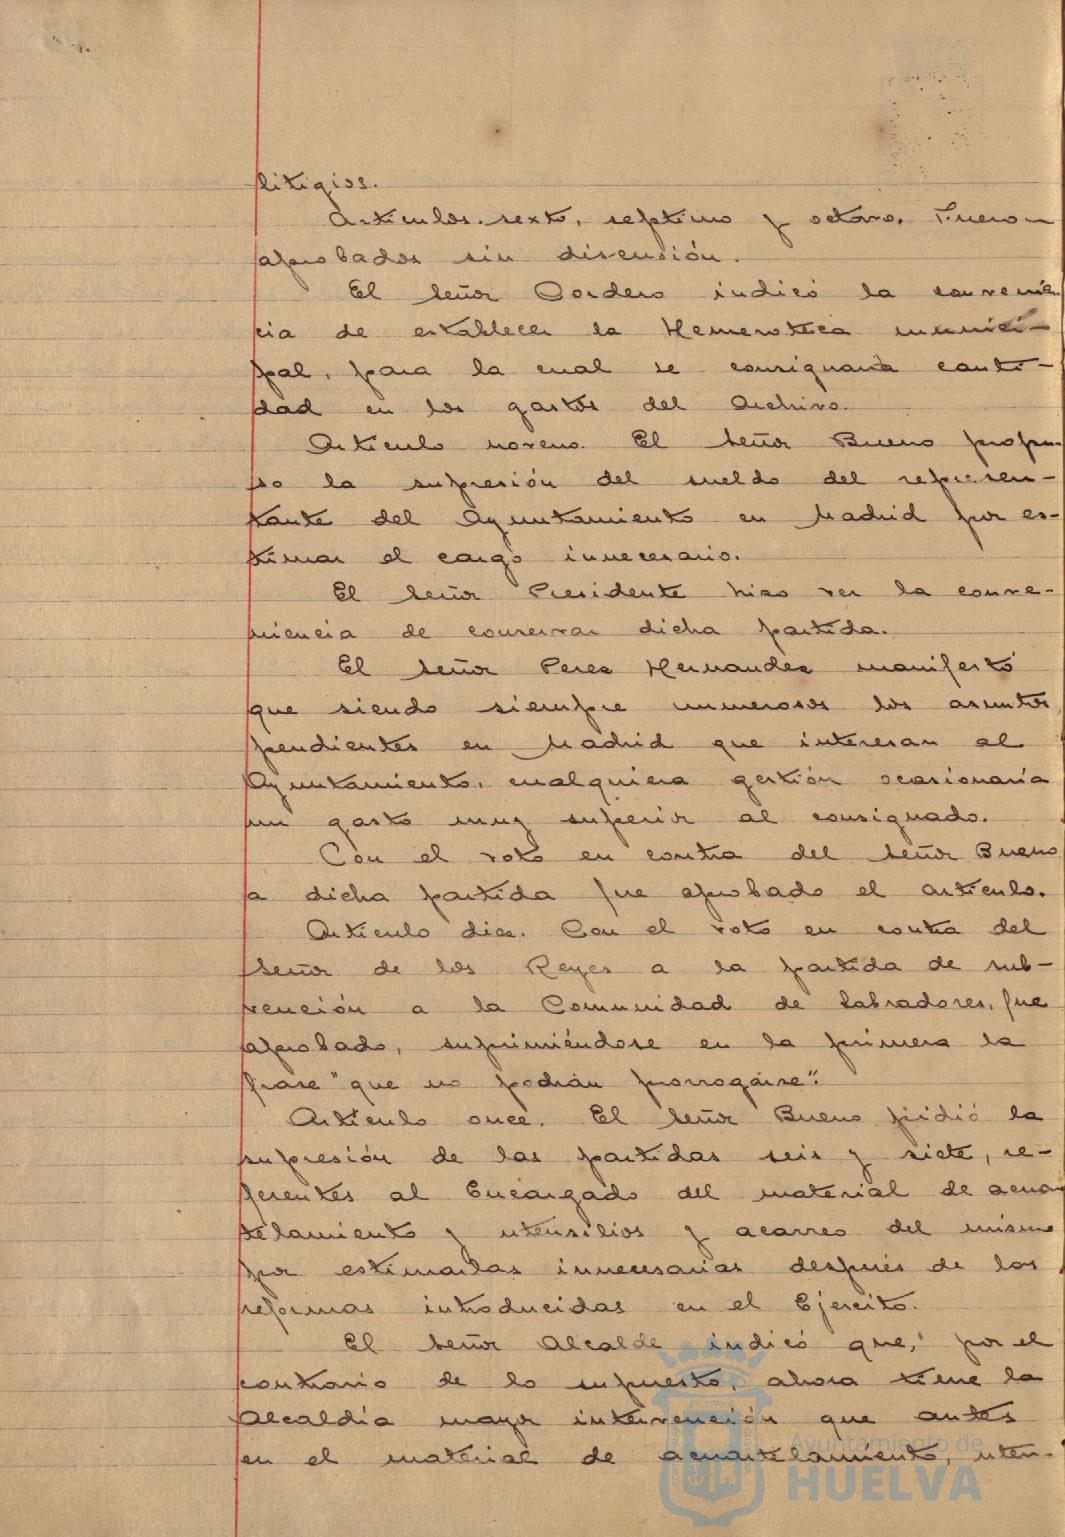 litigios.
Articulos sexto, septimo y octavo. Fueron
aprobados sin discusión.
El señor Cordero indicó la convenien-
cia de establecer la Hemeroteca munici-
pal, para la cual se consignaría canti-
dad en los gastos del Archivo.
Articulo noveno. El señor Bueno propu-
so la supresión del sueldo del represen-
tante del Ayuntamiento en Madrid por es-
timar el cargo innecesario.
El señor Presidente hizo ver la conve-
niencia de conservar dicha partida.
El señor Perez Hernandez manifestó
que siendo siempre numerosos los asuntos
pendientes en Madrid que interesan al
Ayuntamiento, cualquiera gestión ocasionaría
un gasto muy superior al consignado.
Con el voto en contra del señor Bueno
a dicha partida fue aprobado el articulo.
Articulo diez. Con el voto en contra del
señor de los Reyes a la partida de sub-
vención a la Comunidad de Labradores, fue
aprobado, suprimiéndose en la primera la
frase "que no podrán prorrogarse".
Articulo once. El señor Bueno pidió la
supresión de las partidas seis y siete, re-
ferentes al Encargado del material de acuar
telamiento y utensilios y acarreo del mismo
por estimarlas innecesarias después de las
reformas introducidas en el Ejercito.
El señor Alcalde indicó que, por el
contrario de lo supuesto, ahora tiene la
Alcaldía mayor intervención que antes
en el material de acuartelamiento, uten-
Ayuntamiento de
HUELVA